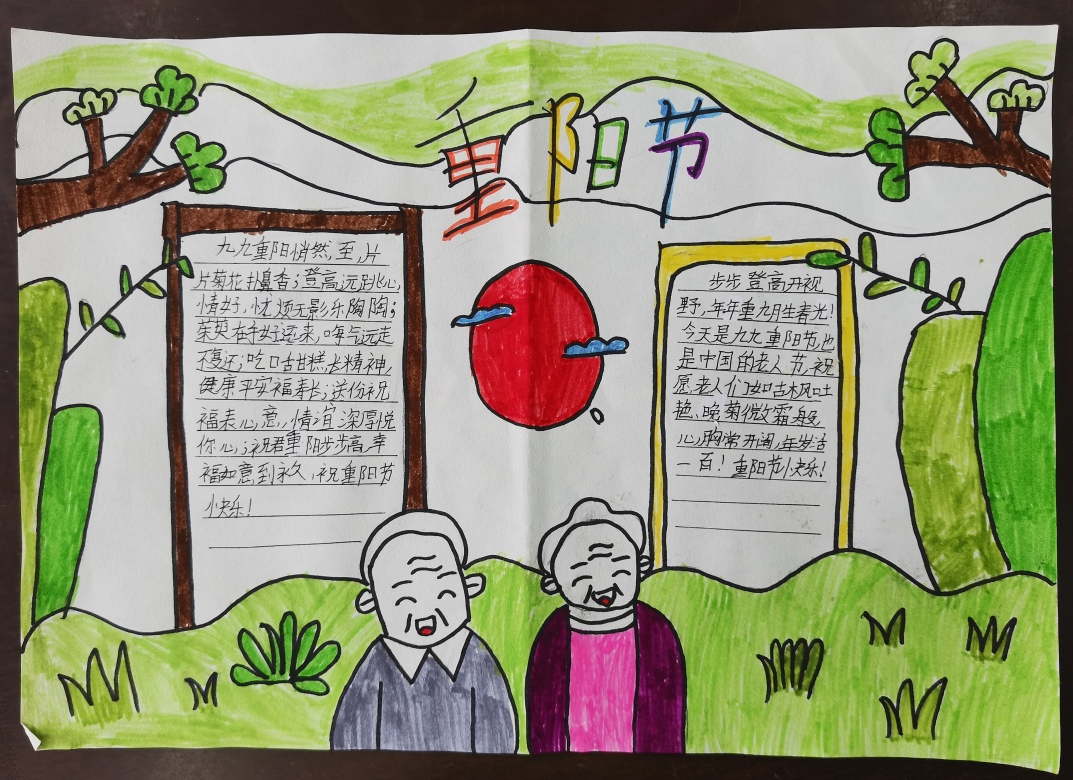 重阳节
九九重阳悄然至,片
片菊花扑鼻香;登高远跳心
情好,忧烦无影乐陶陶;
茱萸在手好运来,晦气远走
不复还;吃口古甜糕长精神,
健康平安福寿长;送份祝
福表心意,情谊深厚悦
你心;祝君重阳步步高,幸
福如意到永久,祝重阳节
快乐!
步步登高开视
野,年年重九月生春光!
今天是九九重阳节,也
是中国的老人节,祝
愿老人们如古木风吐
艳、晚菊傲霜般
心胸常开阔,年岁活
一百!重阳节快乐!